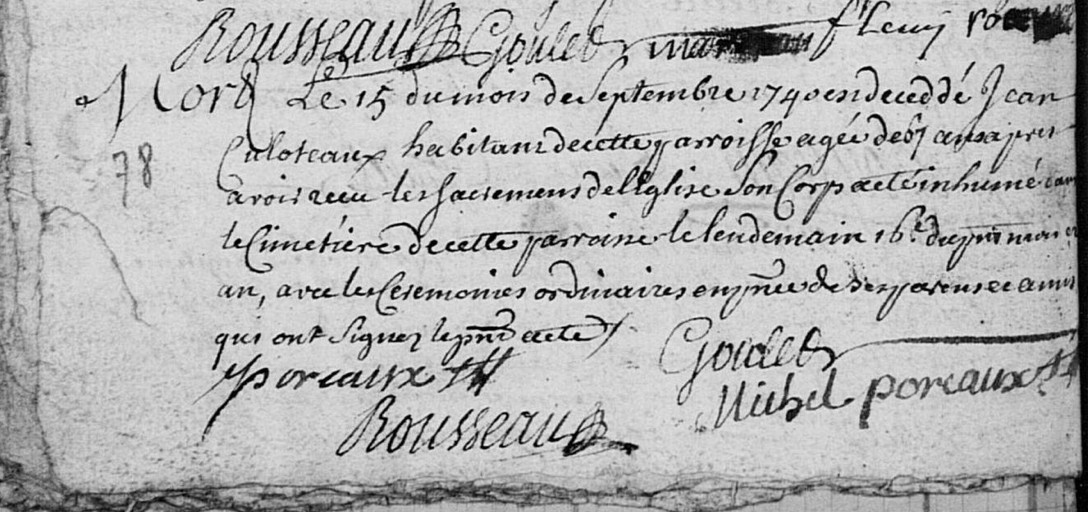 Rousseau Goulet
Mort Le 15 du mois de Septembre 1740 est deceddé Jean
Culoteaux habitant de cette parroisse agée de 67 ans apres
avoir receu les sacremens de l'Eglise Son Corp a eté inhumé dans
le Cimetiere de cette parroisse le lendemain 16e du pnt mois et
an, avec les Ceremonies ordinaires en pnce de Ses parens et amis
qui ont Signez le pnt acte
78
poreaux Goulet
Rousseau Michel poreaux